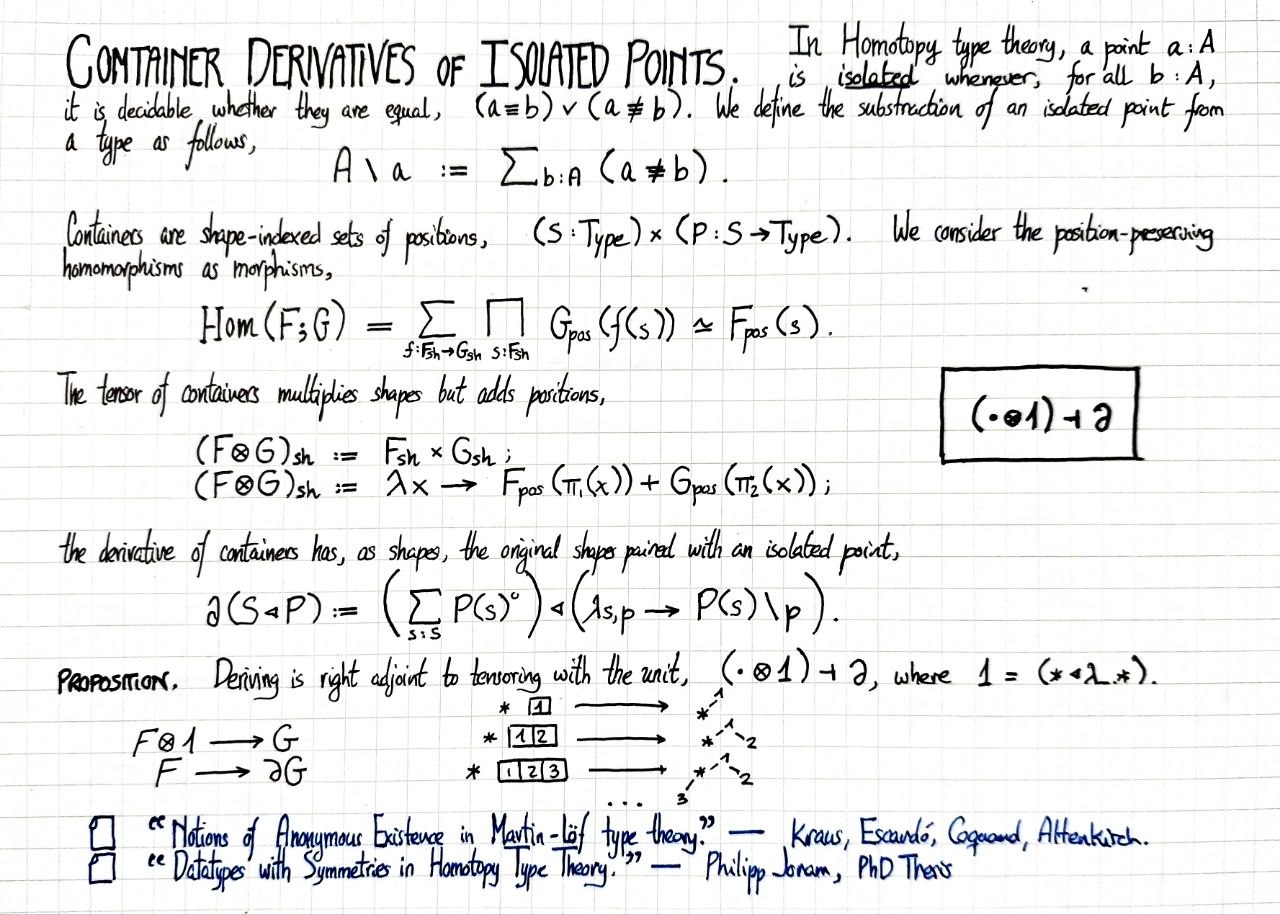 CONTAINER DERIVATIVES OF ISOLATED POINTS. In Homotopy type theory, a point a : A
is isolated whenever, for all b : A,
it is decidable whether they are equal, (a ≡ b) ∨ (a ≢ b). We define the substraction of an isolated point from
a type as follows,
A \ a := ∑ b:A (a ≢ b).
Containers are shape-indexed sets of positions, (S : Type) × (P : S → Type). We consider the position-preserving
homomorphisms as morphisms,
Hom (F; G) = ∑ f:Fsh→Gsh ∏ s:Fsh Gpos (f(s)) ≃ Fpos (s).
The tensor of containers multiplies shapes but adds positions,
(· ⊗ 1) ⊣ ∂
(F ⊗ G)sh := Fsh × Gsh ;
(F ⊗ G)sh := λx → Fpos (π₁(x)) + Gpos (π₂(x)) ;
the derivative of containers has, as shapes, the original shapes paired with an isolated point,
∂(S ◁ P) := (∑ s:S P(s)°) ◁ (λs,p → P(s) \ p).
PROPOSITION. Deriving is right adjoint to tensoring with the unit, (· ⊗ 1) ⊣ ∂, where 1 = (* ◁ λ_.*).
* 1 → * 1
F ⊗ 1 → G
* 1 2 → * 1 2
F → ∂G
* 1 2 3 → * 1 2 3
...
“Notions of Anonymous Existence in Martin-Löf type theory.” — Kraus, Escardó, Coquand, Altenkirch.
“Datatypes with Symmetries in Homotopy Type Theory.” — Philipp Joram, PhD Thesis